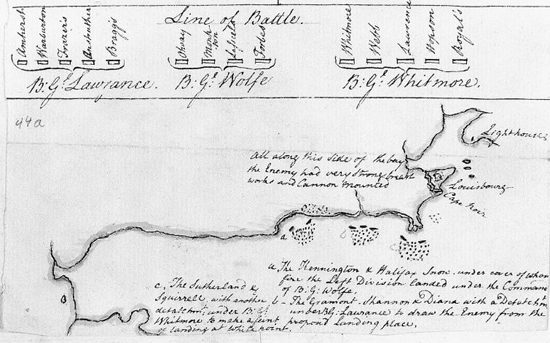 Line of Battle.
Amherst
Warburton
Frazer's
Anstruther
Bragg's
Otway
Monk-
ton
Lassells
Forbes
Whitmore
Webb
Lawrence
Hopson
Royal's
B:Gl Lawrance.
B:Gl Wolfe
B:Gl Whitmore.
44a
Lighthouse
All along this side of the bay
the Enemy had very strong breast
works and Cannon mounted
Louisbourg
Cape Noir
a
b
c
a The Kennington & Halifax Snow. under cover of whose
fire the Left Division landed under the Command
of B:Gl Wolfe.
b - The Gramont. Shannon & Diana with a Detatchmt
under B:Gl Lawrance to draw the Enemy from the
propos'd Landing place.
c. The Sutherland &
Squirrell, with another
detatchmt under B:Gl
Whitmore to make a feint
of landing at White point.